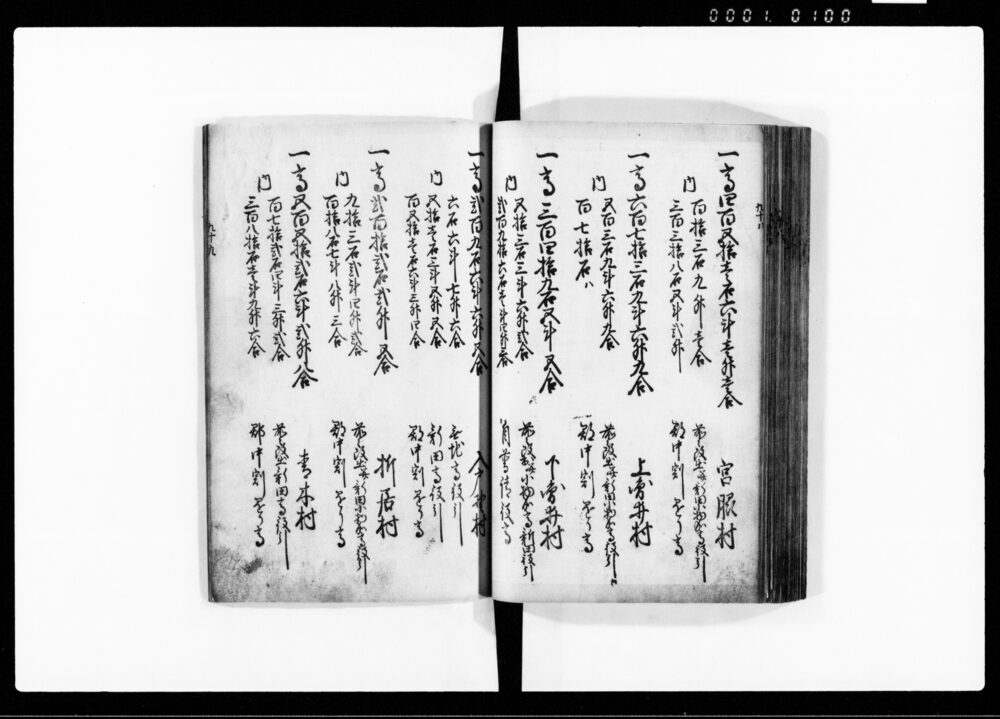 0001. 0100
九十八
一高四百五拾壱石六斗壱升壱合 宮服村
内 百拾三石九升壱合 高役引
三百三拾八石五斗弐升 郡中割掛り高
一高六百七拾三石九斗六升九合 上曽井村
内 五百三石九斗六升九合 新田小物成高役引
百七拾石ハ 郡中割掛り高
一高三百四拾九石五斗五合 下曽井村
内 五拾三石三斗六升弐合 小物成高新田役引
弐百九拾六石壱斗四升三合 役高
一高弐百九石六斗六升五合 入野村
六石六斗七升六合 無地高役引
内 五拾壱石三斗五升五合 新田高役引
百五拾壱石六斗三升四合 郡中割掛り高
一高弐百拾弐石弐升五合 折居村
内 九拾三石弐斗四升弐合 新田小物成高役引
百拾八石七斗八升三合 郡中割掛り高
一高五百五拾弐石六斗弐升八合 青木村
内 百七拾弐石四斗三升弐合 新田高役引
三百八拾石壱斗九升六合 郡中割掛り高
九十九